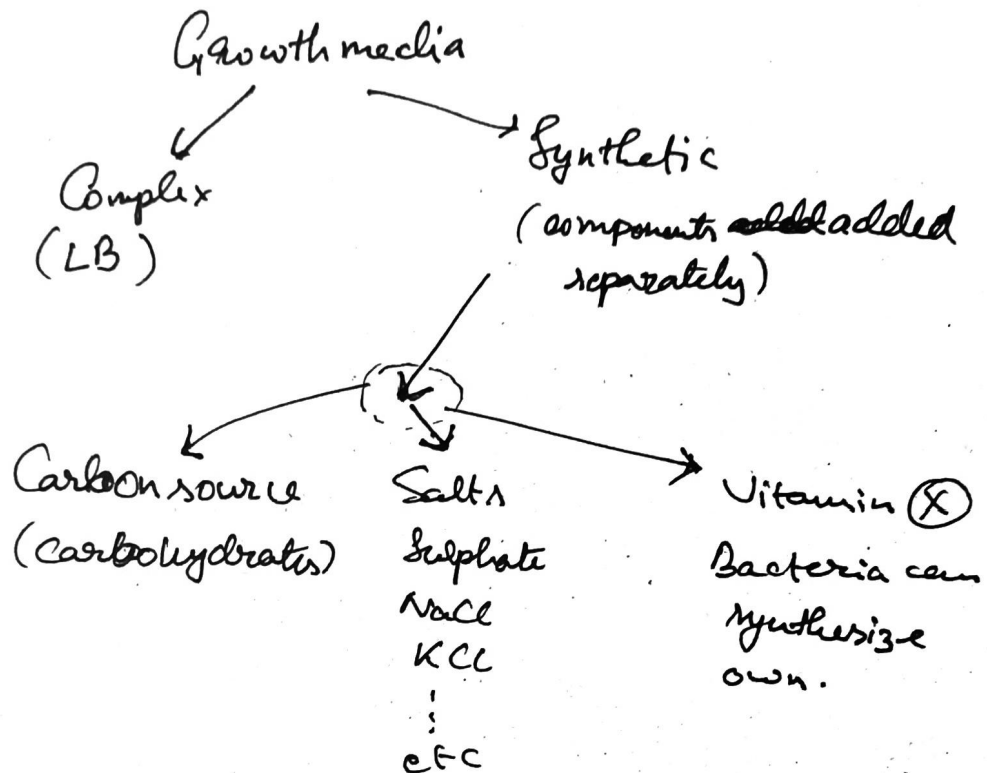 Growth media
Complex
(LB)
Synthetic
(components added added
separately)
Carbon source
(carbohydrates)
Salts
Sulphate
NaCl
KCl
etc
Vitamin X
Bacteria can
synthesize
own.